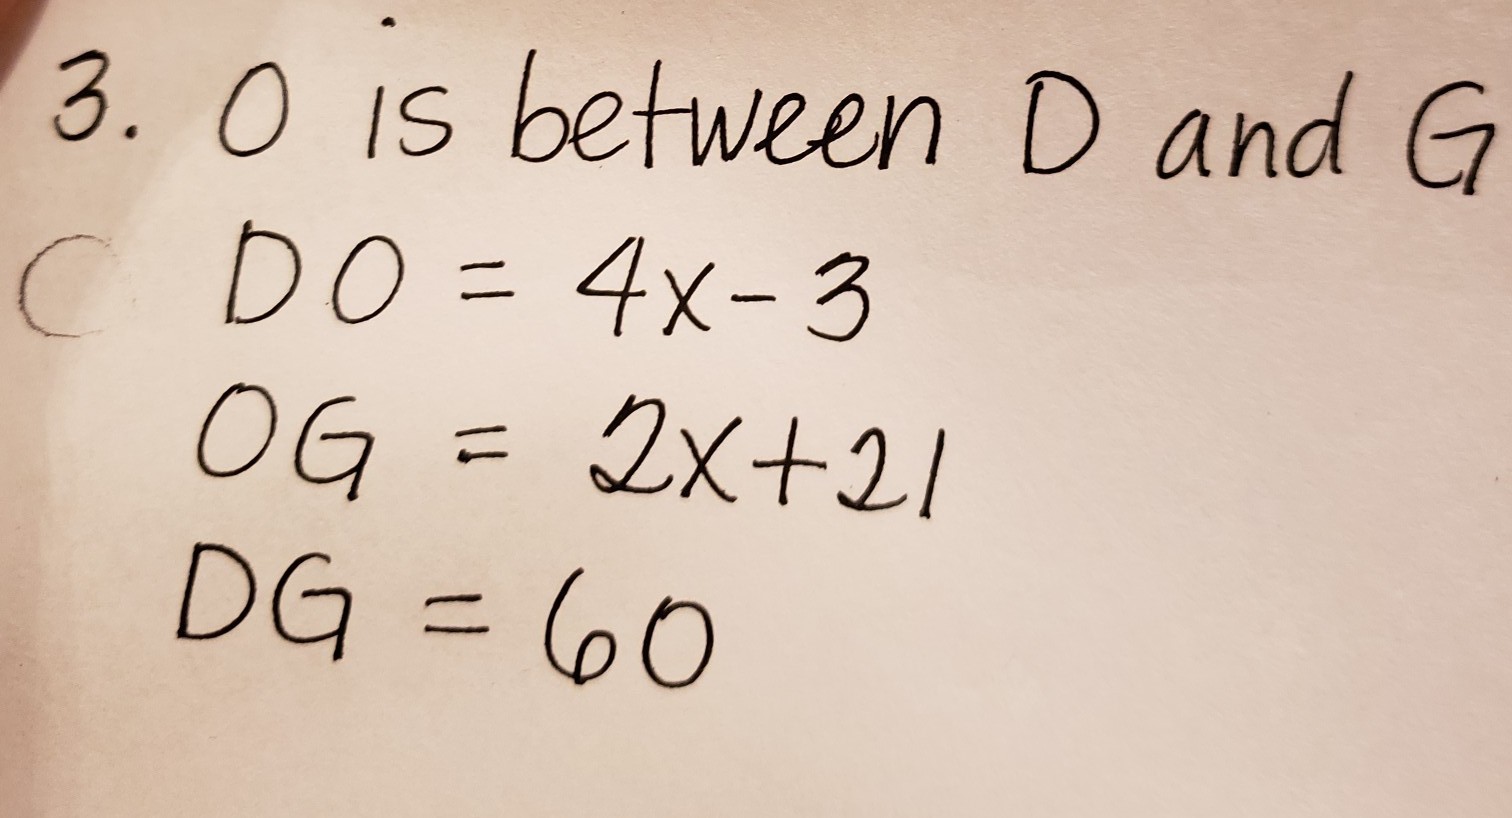 3. O is between D and G
C DO = 4x-3
OG = 2x+21
DG = 60